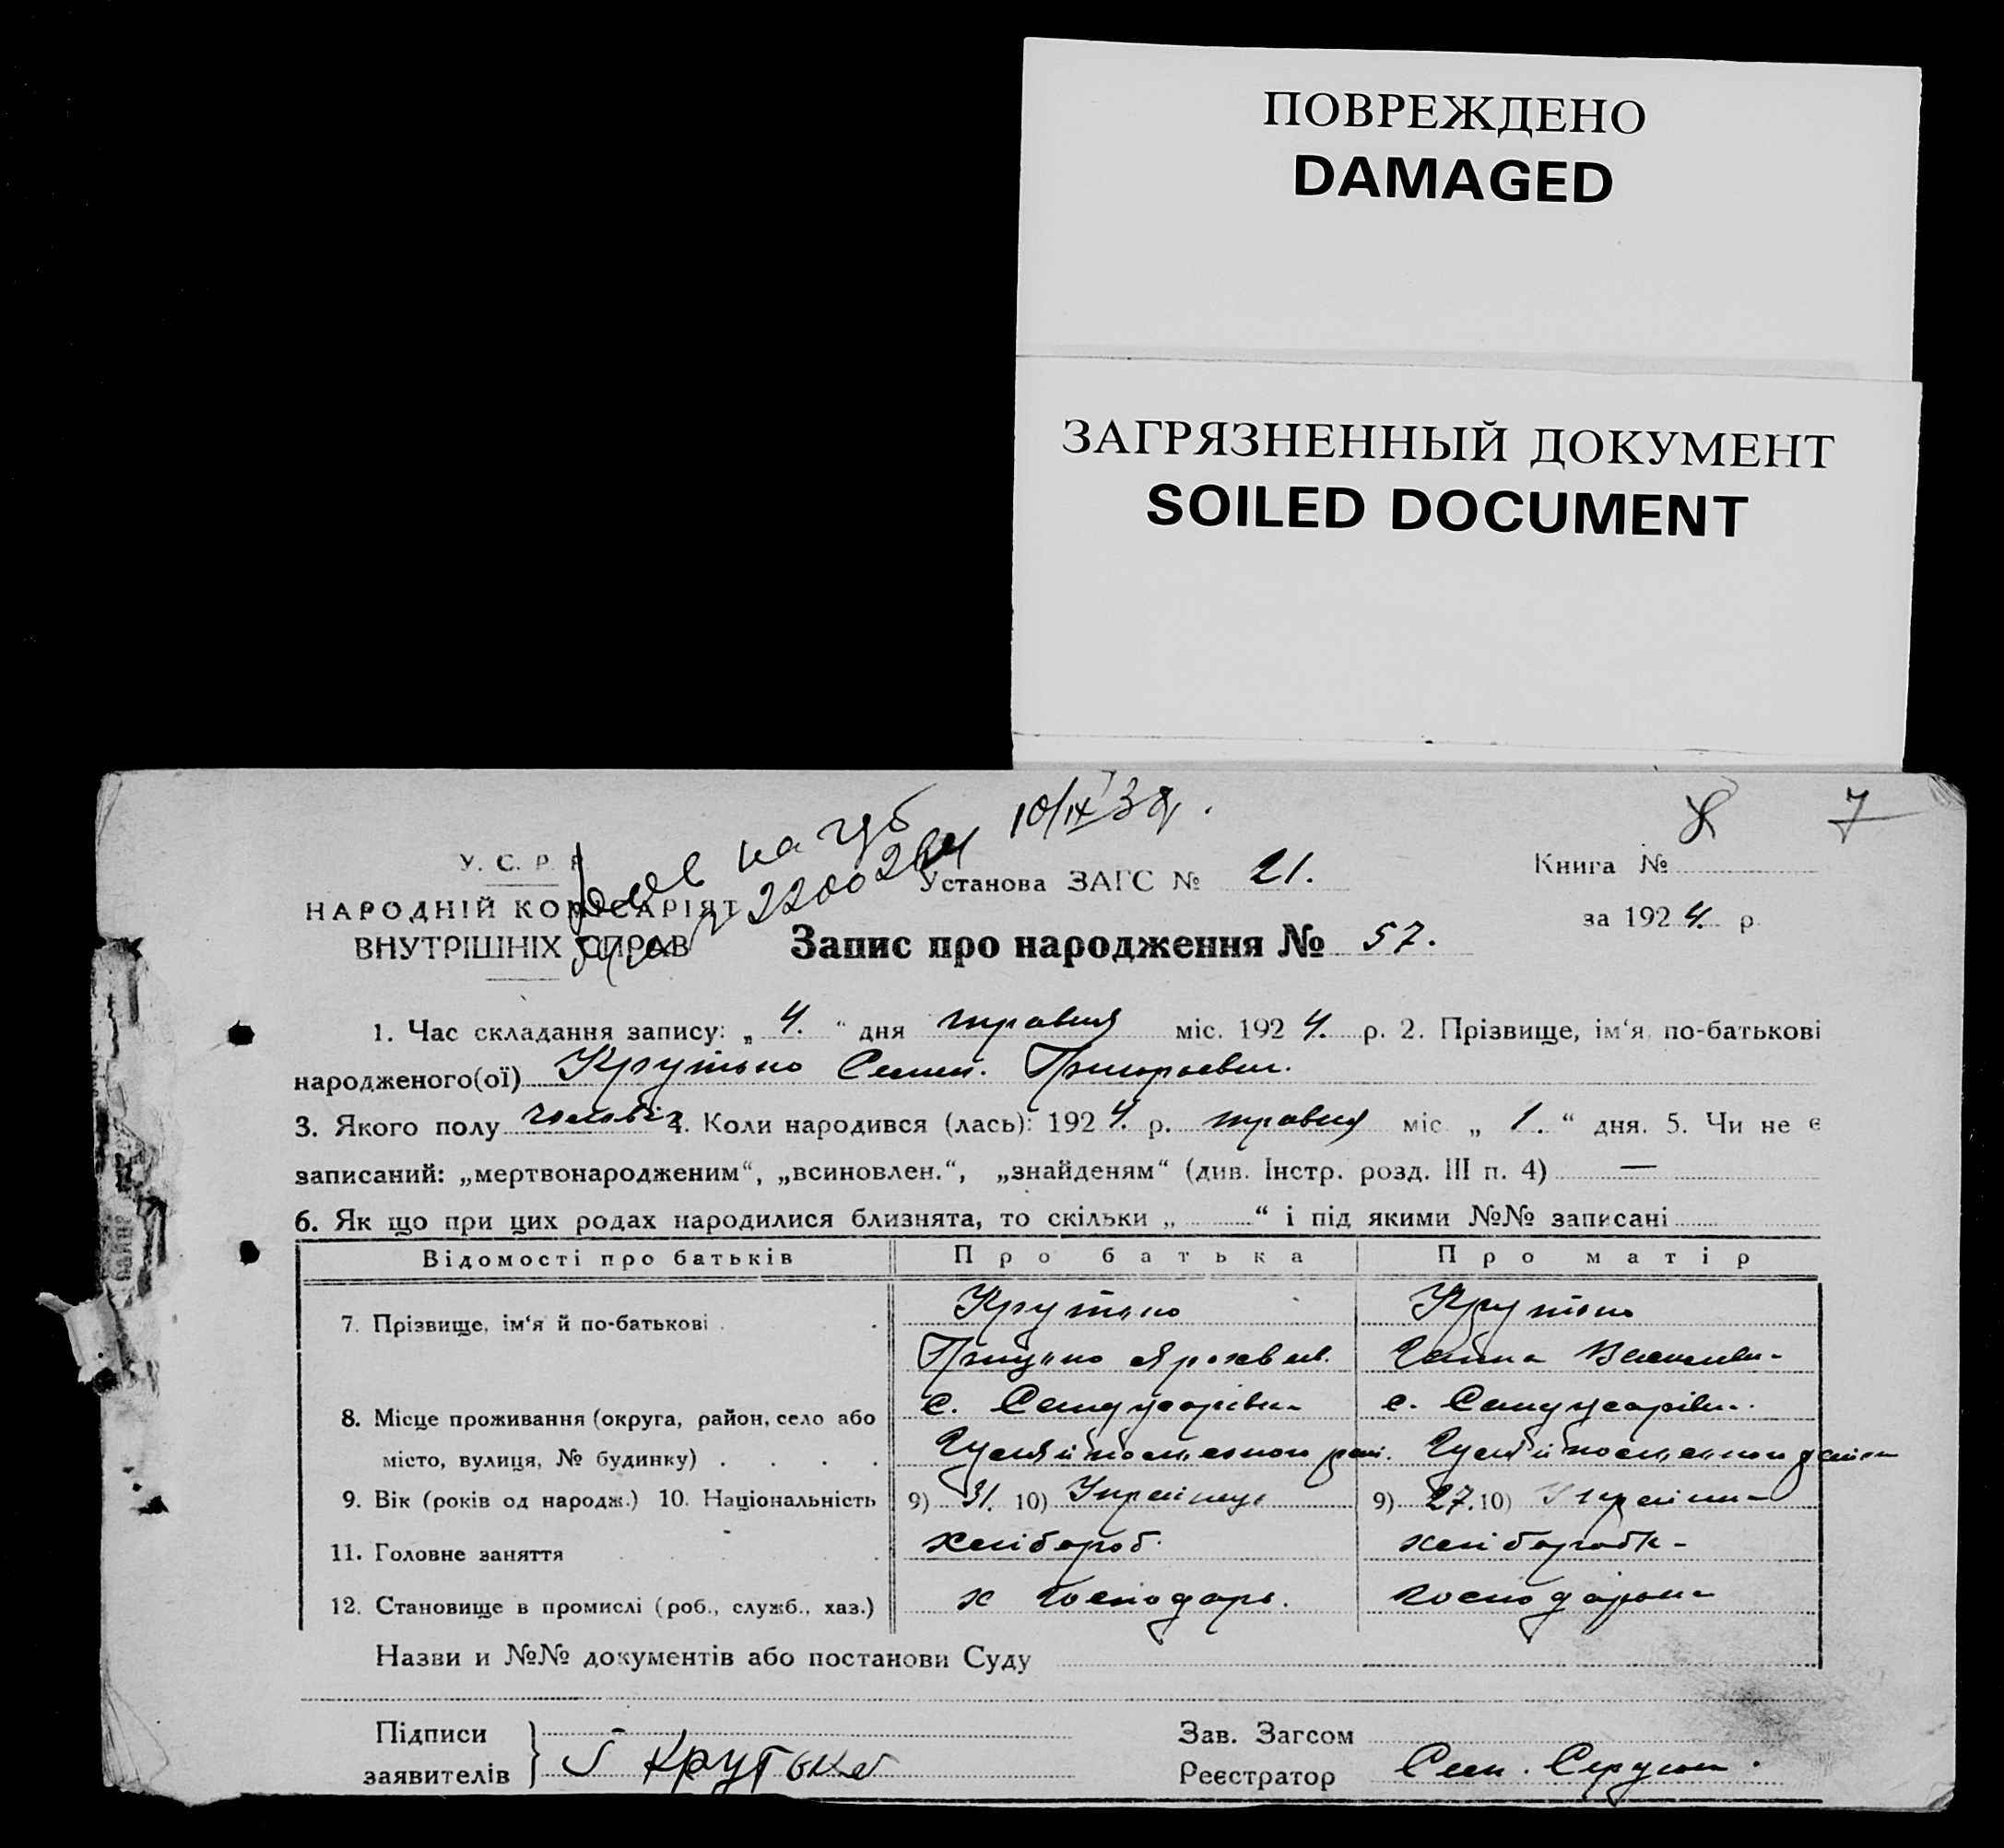 ПОВРЕЖДЕНО
DAMAGED
ЗАГРЯЗНЕННЫЙ ДОКУМЕНТ
SOILED DOCUMENT
10/IX 38 8 7
на
У. С. Р. Р. Установа ЗАГС № 21. Книга №
НАРОДНІЙ КОМІСАРІЯТ за 1924. р.
ВНУТРІШНІХ СПРАВ Запис про народження № 57.
1. Час складання запису: „4.“ дня травня міс. 1924. р. 2. Прізвище, ім‘я по-батькові
народженого(ої) Крутько Семен. Григорьевич.
3. Якого полу чоловіч 4. Коли народився (лась): 1924. р. травня міс „1.“ дня. 5. Чи не є
записаний: „мертвонародженим“, „всиновлен.“, „знайденям“ (див. Інстр. розд. III п. 4) —
6. Як що при цих родах народилися близнята, то скільки „ “ і під якими №№ записані
Відомості про батьків Про батька Про матір
7. Прізвище, ім‘я й по-батькові Крутько Крутько
Ганна
8. Місце проживання (округа, район, село або с. с.
місто, вулиця, № будинку)
9. Вік (років од народж.) 10. Національність 9) 31. 10) Українец 9) 27. 10) Україн
11. Головне заняття хлібороб. хлібороб
12. Становище в промислі (роб., служб., хаз.) х господарь. господарьк
Назви и №№ документів або постанови Суду
Підписи Зав. Загсом
заявителів Крутько Реєстратор